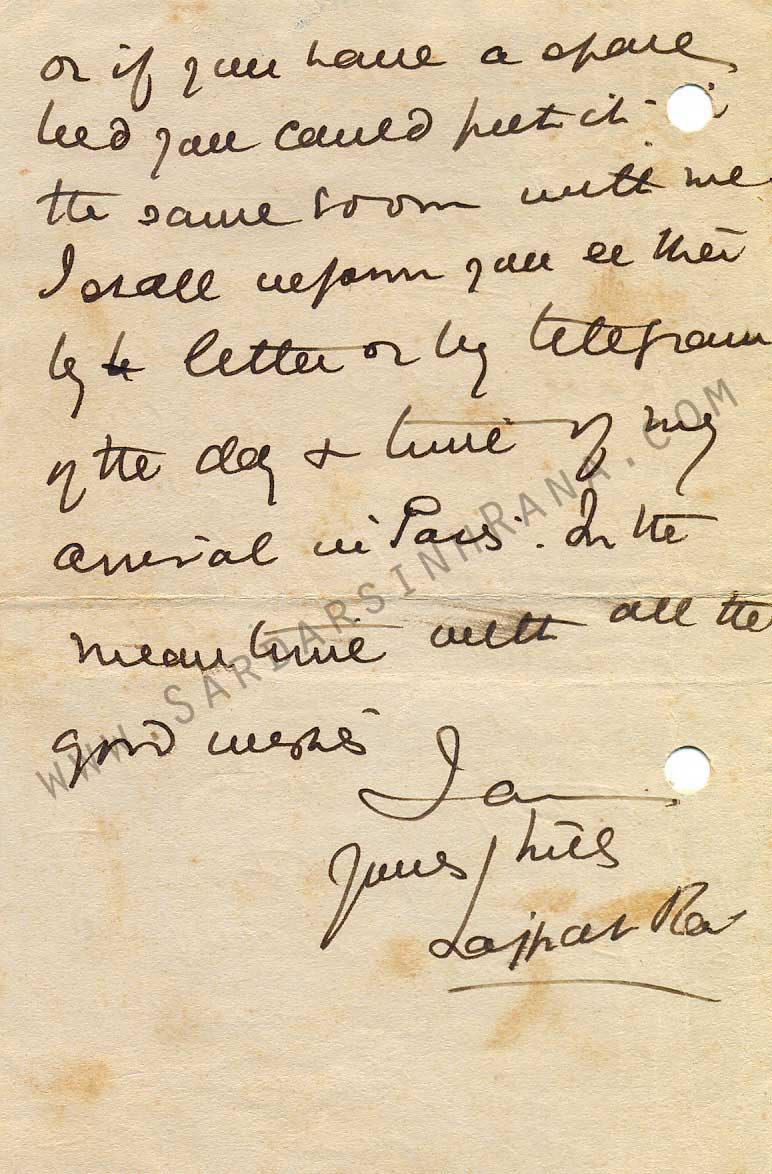 or if you have a spare
bed you could put it
the same room with me
I shall inform you either
by letter or by telegram
of the day & time of my
arrival in Paris. In the
meantime with all the
good wishes
I am
Yours
Lajpat Rai
WWW.SARDARSINHRANA.COM